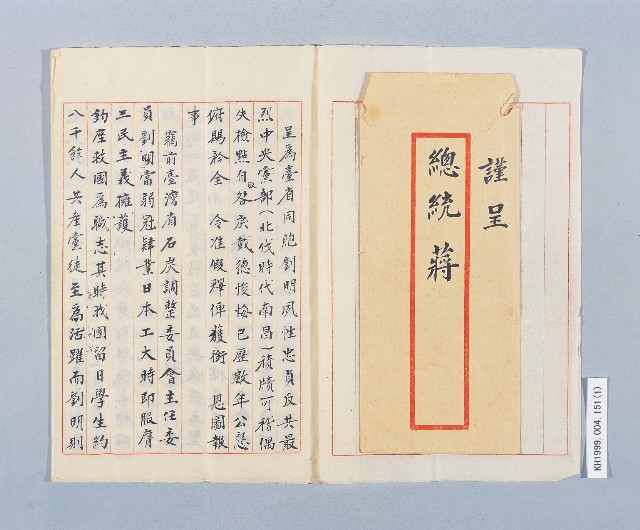 謹呈
總統 蔣
呈為臺省同胞劉明夙性忠貞反共最
烈中央黨部(北伐時代南昌)積牘可稽偶
失檢點自取咎戾戴德悛悔已歷數年公懇
俯賜矜全 令准假釋俾獲銜 恩圖報
事
竊前臺灣省石炭調整委員會主任委
員劉明當弱冠肄業日本工大時即服膺
三民主義擁護
鈞座救國為職志其時我國留日學生約
八千餘人共產黨徒至為活躍而劉明則
KH1999.004.151(1)